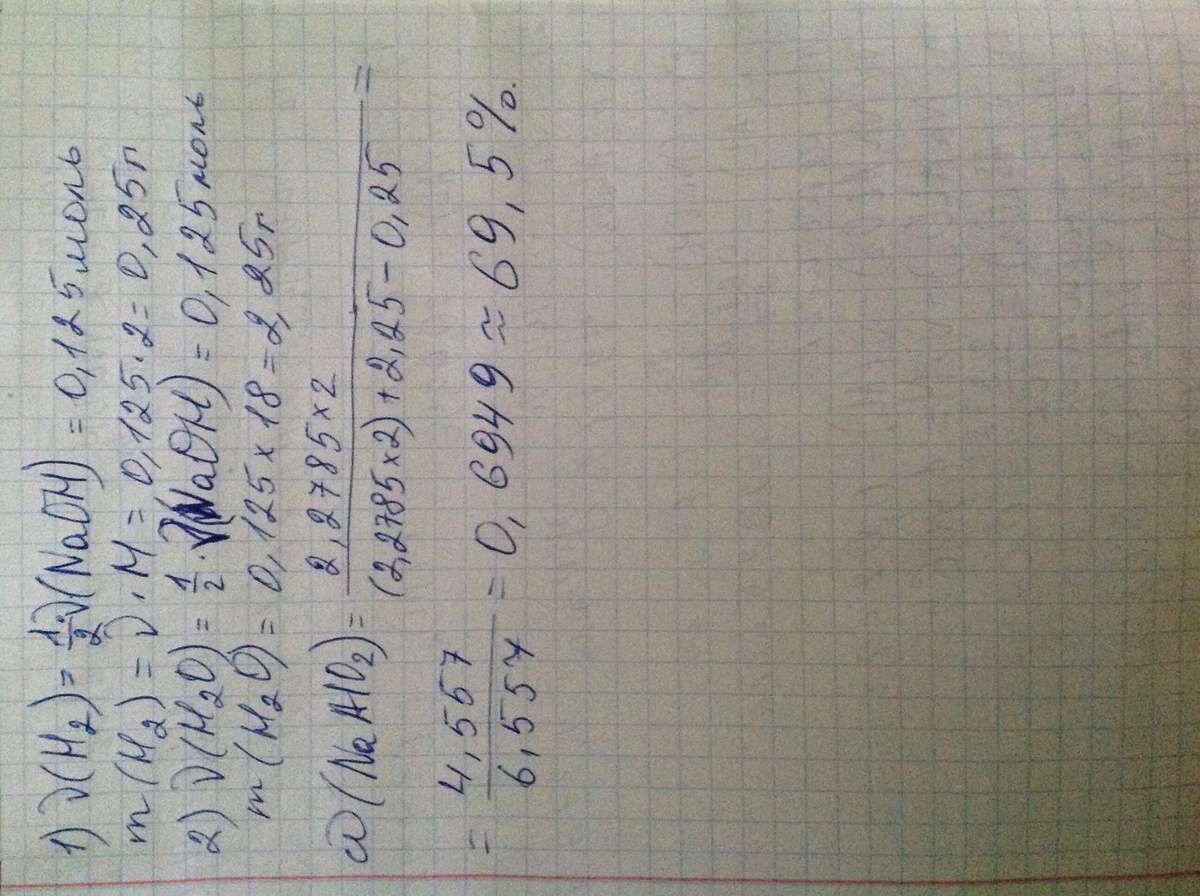 1) ν(H₂) = 1/2 ν(NaOH) = 0,125 моль
m(H₂) = ν · M = 0,125 · 2 = 0,25 г
2) ν(H₂O) = 1/2 · ν(NaOH) = 0,125 моль
m(H₂O) = 0,125 × 18 = 2,25 г
ω(NaAlO₂) = 2,2785 × 2 / (2,2785 × 2) + 2,25 − 0,25 =
= 4,557 / 6,557 = 0,6949 ≈ 69,5 %.